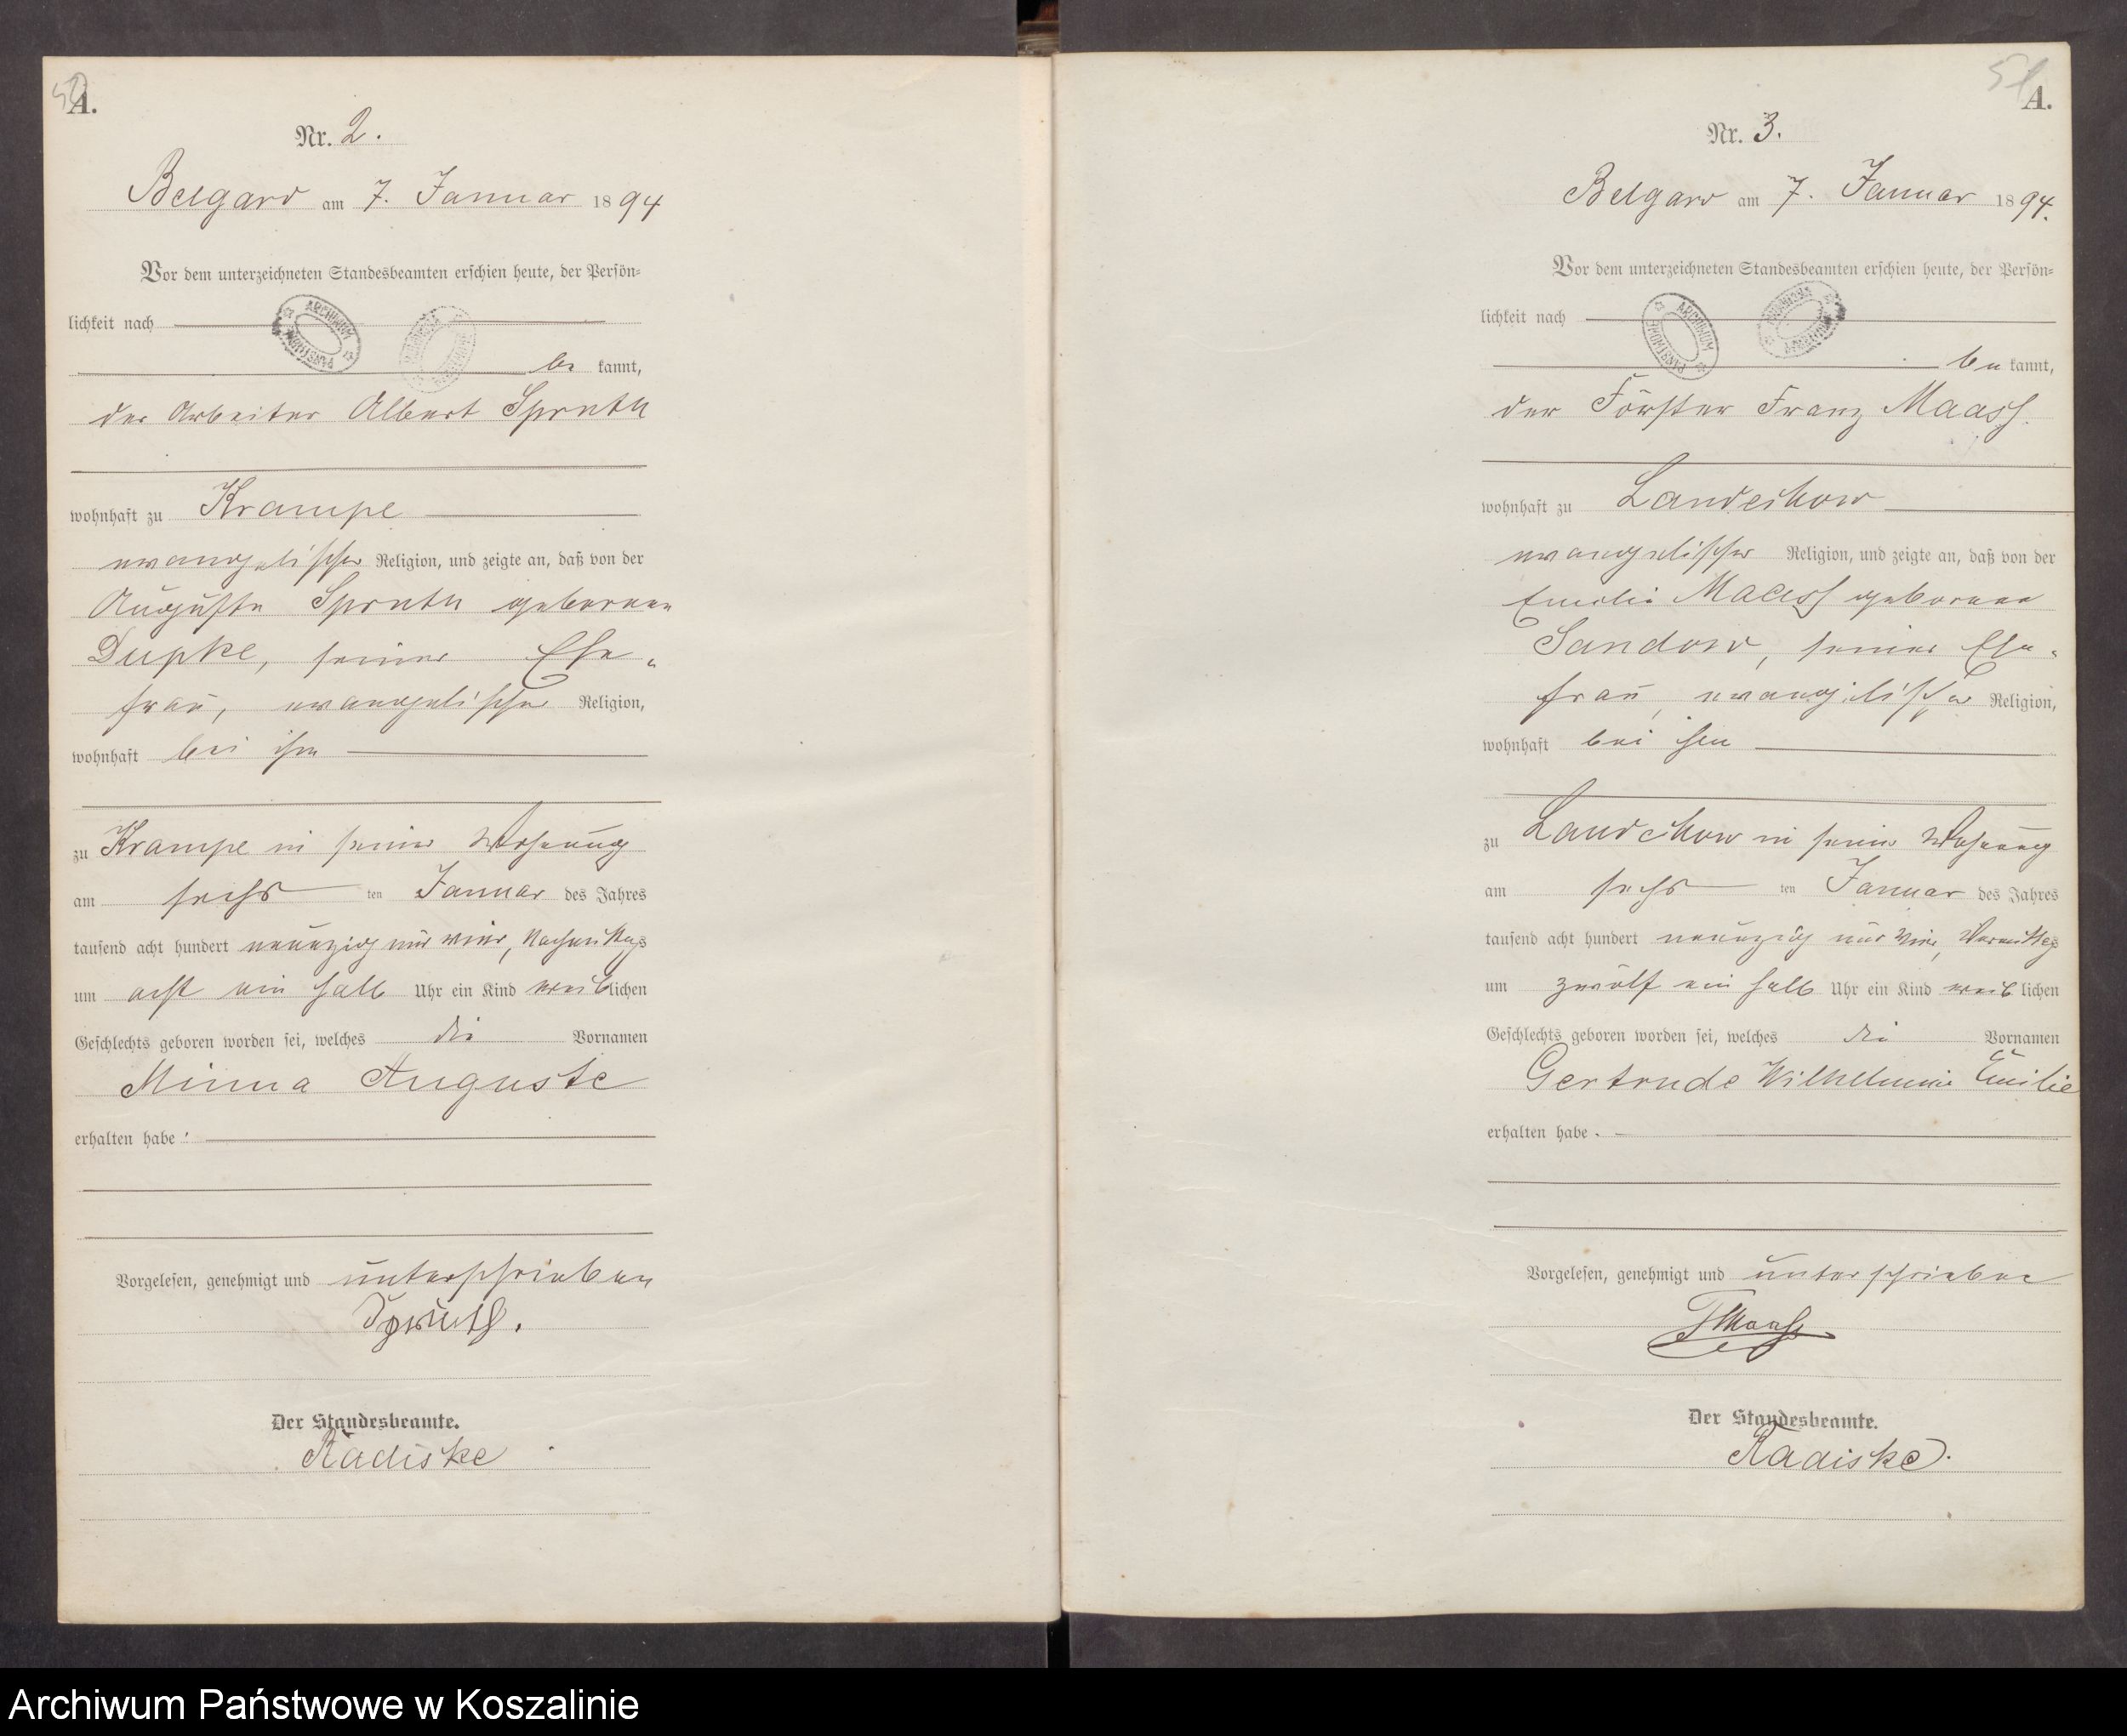 50
A.
Nr. 2.
Belgard am 7. Januar 1894
Vor dem unterzeichneten Standesbeamten erschien heute, der Persön-
lichkeit nach
ARCHIWUM PAŃSTWOWE
be kannt,
der Arbeiter Albert Spruth
wohnhaft zu Krampe
evangelischer Religion, und zeigte an, daß von der
Auguste Spruth geborenen
Dupke, seiner Ehe-
frau, evangelischer Religion,
wohnhaft bei ihm
zu Krampe in seiner Wohnung
am sechs ten Januar des Jahres
tausend acht hundert neunzig und vier, Nachmittags
um acht ein halb Uhr ein Kind weiblichen
Geschlechts geboren worden sei, welches die Vornamen
Minna Auguste
erhalten habe.
Vorgelesen, genehmigt und unterschrieben
Spruth.
Der Standesbeamte.
Radiske
51
A.
Nr. 3.
Belgard am 7. Januar 1894.
Vor dem unterzeichneten Standesbeamten erschien heute, der Persön-
lichkeit nach
ARCHIWUM PAŃSTWOWE
be kannt,
der Förster Franz Maass.
wohnhaft zu Landechow
evangelischer Religion, und zeigte an, daß von der
Emilie Maass geborenen
Sandow, seiner Ehe-
frau, evangelischer Religion,
wohnhaft bei ihm
zu Landechow in seiner Wohnung
am sechs ten Januar des Jahres
tausend acht hundert neunzig und vier, Vormittags
um zwölf ein halb Uhr ein Kind weiblichen
Geschlechts geboren worden sei, welches die Vornamen
Gertrude Wilhelmine Emilie
erhalten habe.
Vorgelesen, genehmigt und unterschrieben
F Maass
Der Standesbeamte.
Radiske.
Archiwum Państwowe w Koszalinie